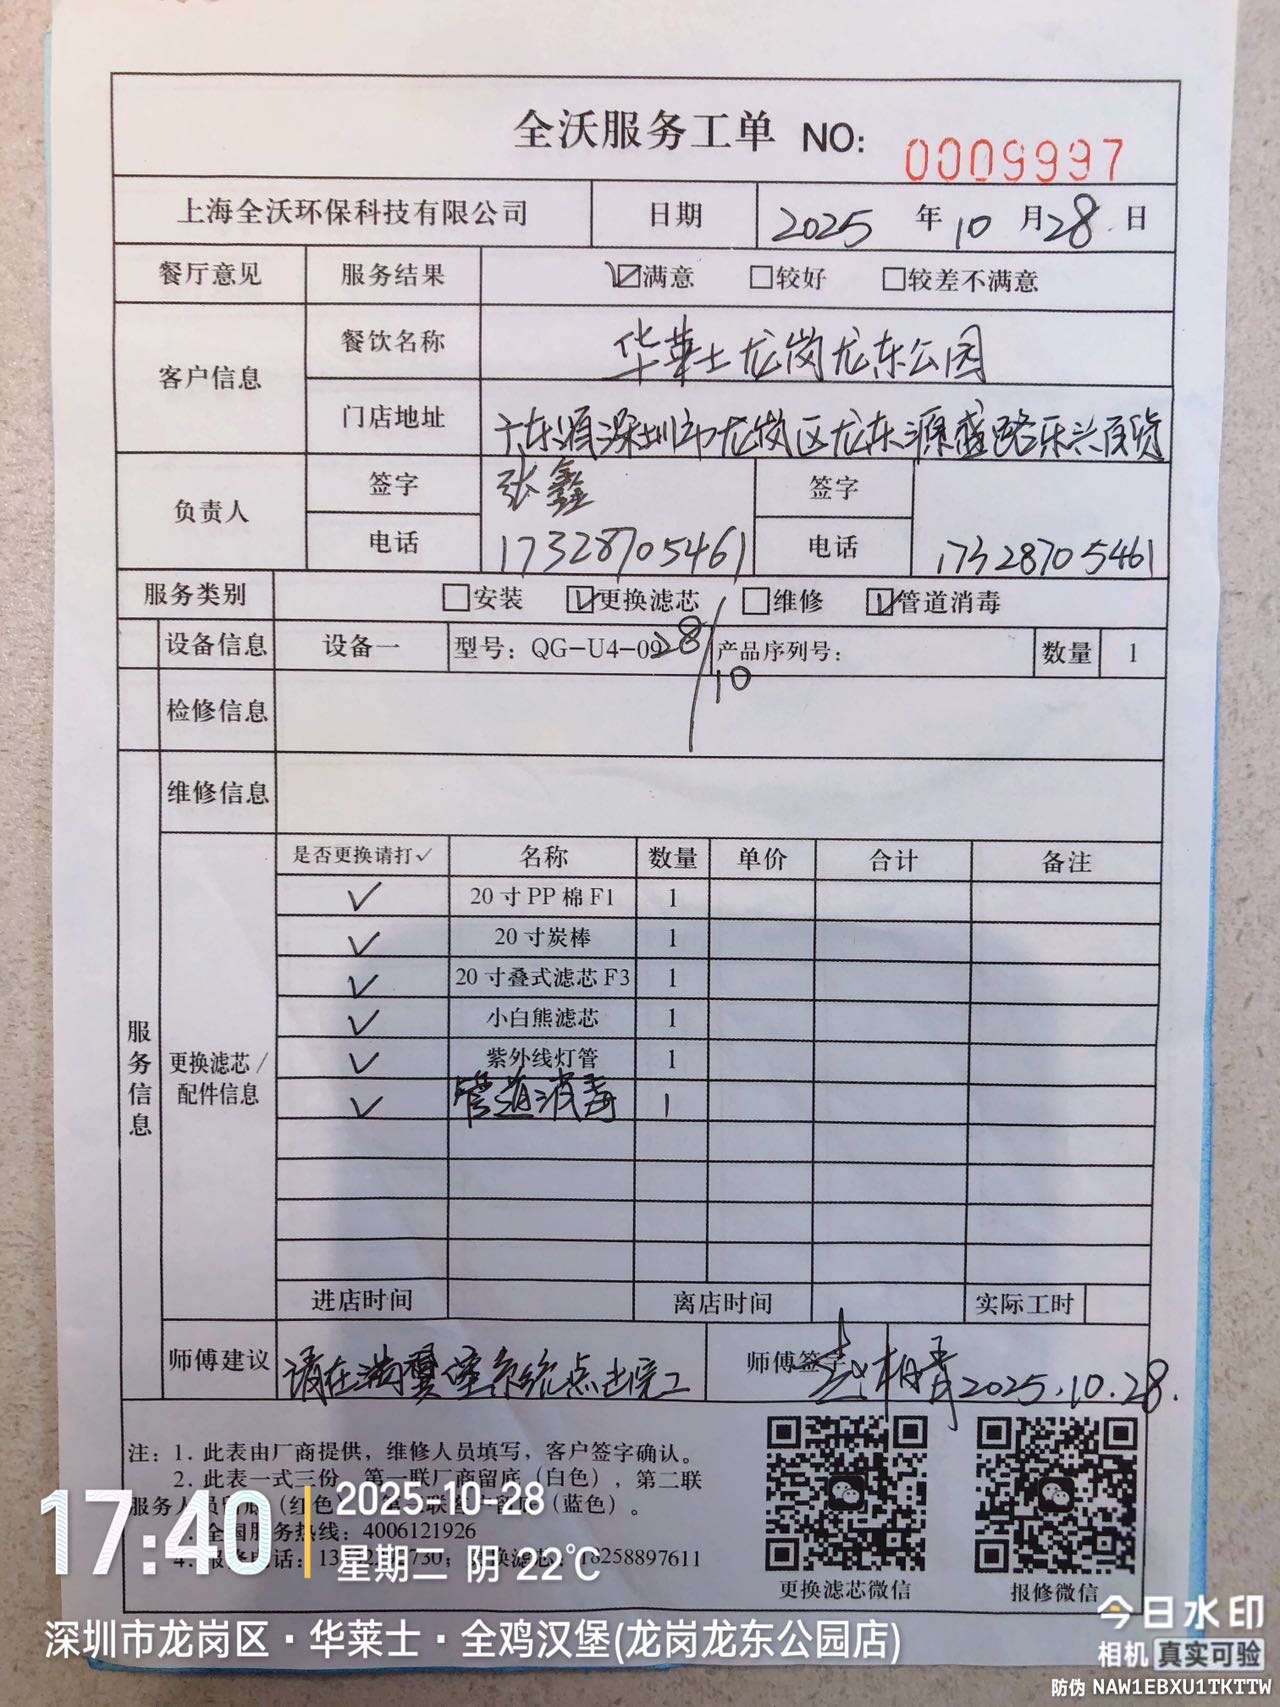 全沃服务工单 NO: 0009997
上海全沃环保科技有限公司 日期 2025 年 10 月 28 日
餐厅意见 服务结果 ☑满意 □较好 □较差不满意
客户信息 餐饮名称 华莱士龙岗龙东公园
门店地址 广东省深圳市龙岗区龙东源盛路乐兴百货
负责人 签字 张鑫 签字
电话 17328705461 电话 17328705461
服务类别 □安装 ☑更换滤芯 □维修 ☑管道消毒
设备信息 设备一 型号：QG-U4-09 产品序列号： 数量 1
28/10
检修信息
维修信息
服务信息
更换滤芯/配件信息
是否更换请打✓ 名称 数量 单价 合计 备注
✓ 20寸PP棉F1 1
✓ 20寸炭棒 1
✓ 20寸叠式滤芯F3 1
✓ 小白熊滤芯 1
✓ 紫外线灯管 1
✓ 管道消毒 1
进店时间 离店时间 实际工时
师傅建议 请在满翼堡系统点击完工 师傅签字 2025.10.28.
注：1. 此表由厂商提供，维修人员填写，客户签字确认。
2. 此表一式三份，第一联厂商留底（白色），第二联
服务人员留底（红色 留底（蓝色）。
全国服务热线：4006121926
4. 报修电话：13 730； 换滤芯：18258897611
更换滤芯微信 报修微信
17:40 2025.10-28
星期二 阴 22℃
深圳市龙岗区·华莱士·全鸡汉堡(龙岗龙东公园店)
今日水印
相机 真实可验
防伪 NAW1EBXU1TKTTW